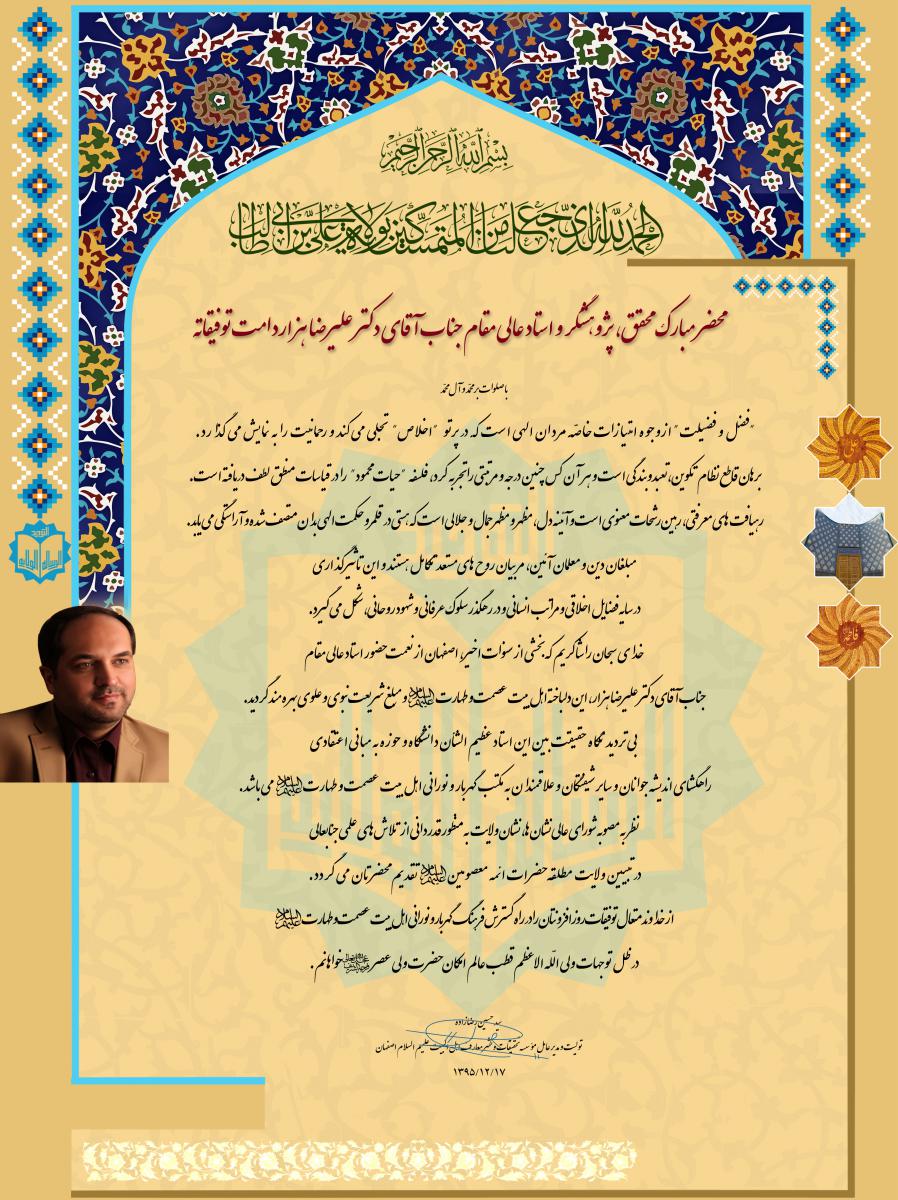 بسم الله الرحمن الرحیم
الحمد لله الذی جعلنا من المتمسکین بولایة علی بن ابی طالب
محضر مبارک محقق، پژوهشگر و استاد عالی مقام جناب آقای دکتر علیرضا هزار دامت توفیقاته
با صلوات بر محمد و آل محمد
"فضل و فضیلت" از وجوه امتیازات خاصّه مردان الهی است که در پرتو "اخلاص" تجلی می کند و رحمانیت را به نمایش می گذارد.
برهان قاطع نظام تکوین، تعبد و بندگی است و هر آن کس چنین درجه و مرتبتی را تجربه کرد، فلسفه "حیات محمود" را در قیاسات منطق لطف دریافته است.
رهیافت های معرفتی، رهین رشحات معنوی است و آئینه دل، مظهر و مظهر جمال و جلالی است که هستی در قلمرو حکمت الهی بدان متصف شده و آراستگی می یابد.
مبلغان دین و معلمان آئین، مربیان روح های مستعد تکامل هستند و این تاثیرگذاری
در سایه فضایل اخلاقی و مراتب انسانی و در رهگذر سلوک عرفانی و شهود روحانی، شکل می گیرد.
خدای سبحان را شاکریم که بخشی از سنوات اخیر، اصفهان از نعمت حضور استاد عالی مقام
جناب آقای دکتر علیرضا هزار، این دلباخته اهل بیت عصمت و طهارت علیهم السلام و مبلغ شریعت نبوی و علوی بهره مند گردید.
بی تردید نگاه حقیقت بین این استاد عظیم الشأن دانشگاه و حوزه به مبانی اعتقادی
راهگشای اندیشه جوانان و سایر شیفتگان و علاقمندان به مکتب گهربار و نورانی اهل بیت عصمت و طهارت علیهم السلام می باشد.
نظر به مصوبه شورای عالی نشان ها، نشان ولایت به منظور قدردانی از تلاش های علمی جنابعالی
در تبیین ولایت مطلقه حضرات ائمه معصومین علیهم السلام تقدیم محضرتان می گردد.
از خداوند متعال توفیقات روزافزونتان را در راه گسترش فرهنگ گهربار و نورانی اهل بیت عصمت و طهارت علیهم السلام
در ظل توجهات ولی الله الاعظم قطب عالم امکان حضرت ولی عصر خواهانم.
سید حسین رضازاده
تولیت و مدیر عامل مؤسسه تحقیقات و نشر معارف اهل البیت علیهم السلام اصفهان
۱۳۹۵/۱۲/۱۷
التوحید
الرسالة
الولایة
علی
فاطمة